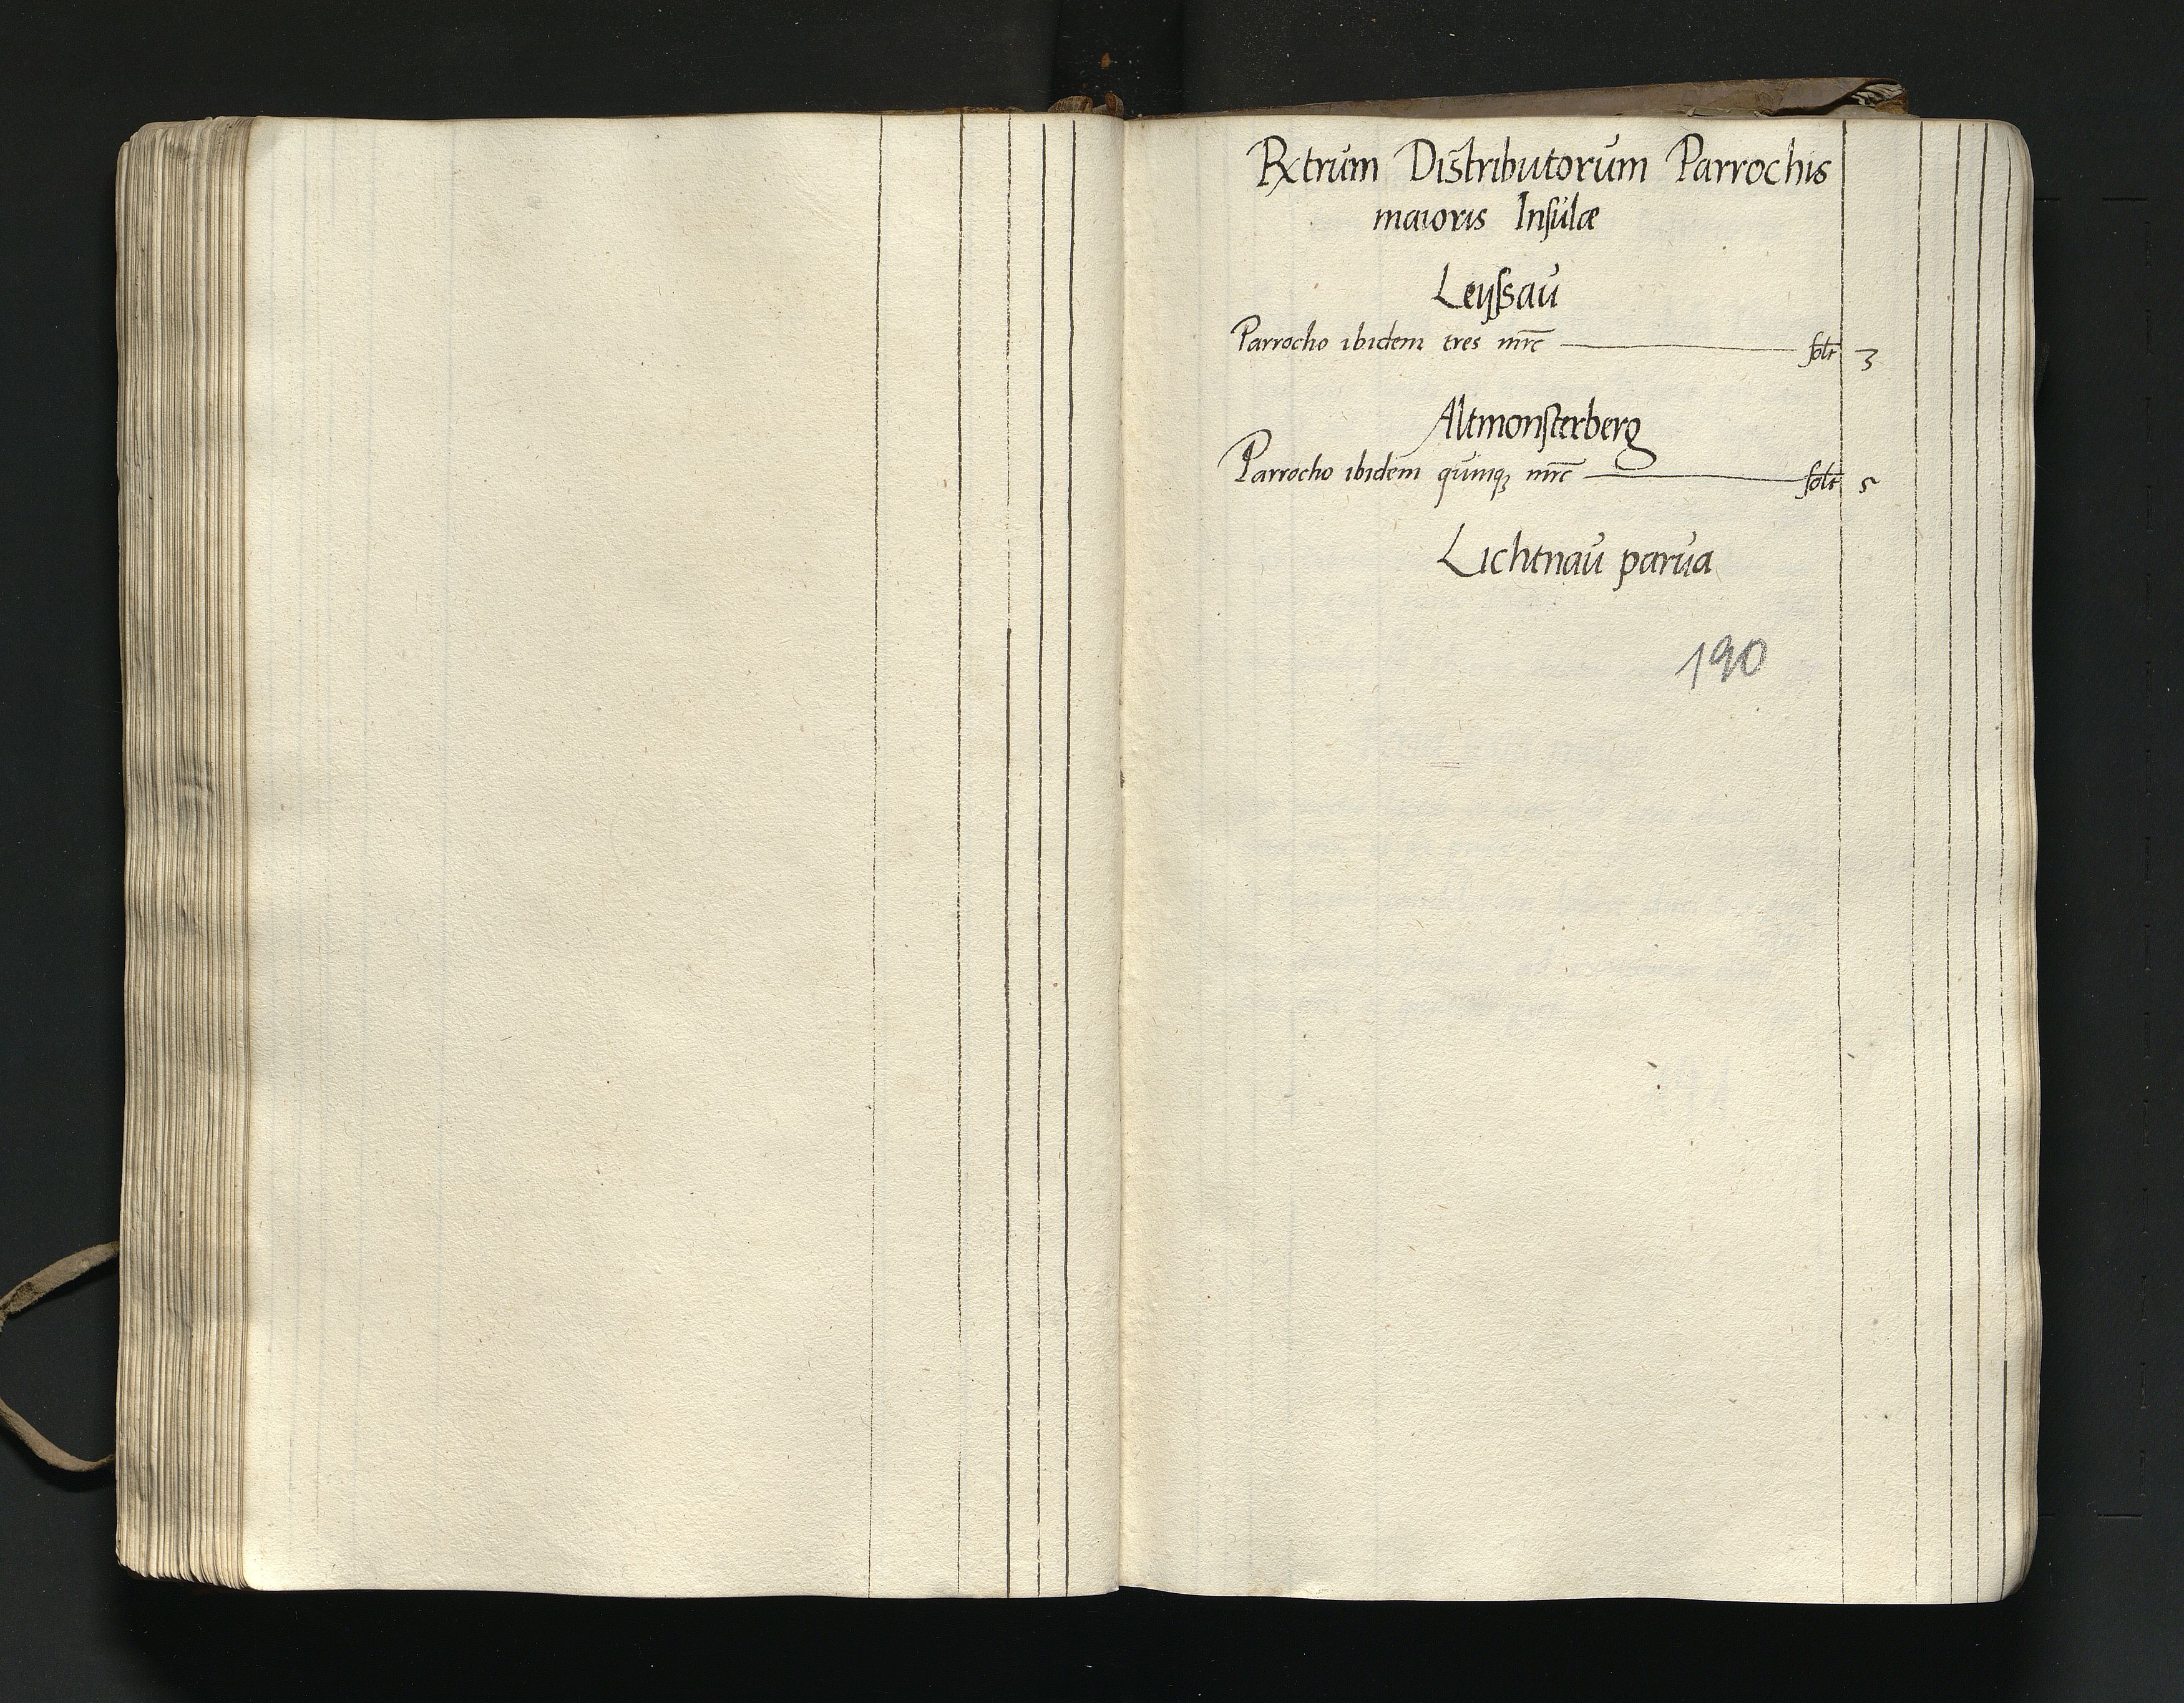 Rxtrum Distributorum Parrochis
maioris Insulæ
Leÿssau
Parrocho ibidem tres mrc solt 3
Altmonsterberg
Parrocho ibidem quinq; mrc solt 5
Lichtnau parua
190